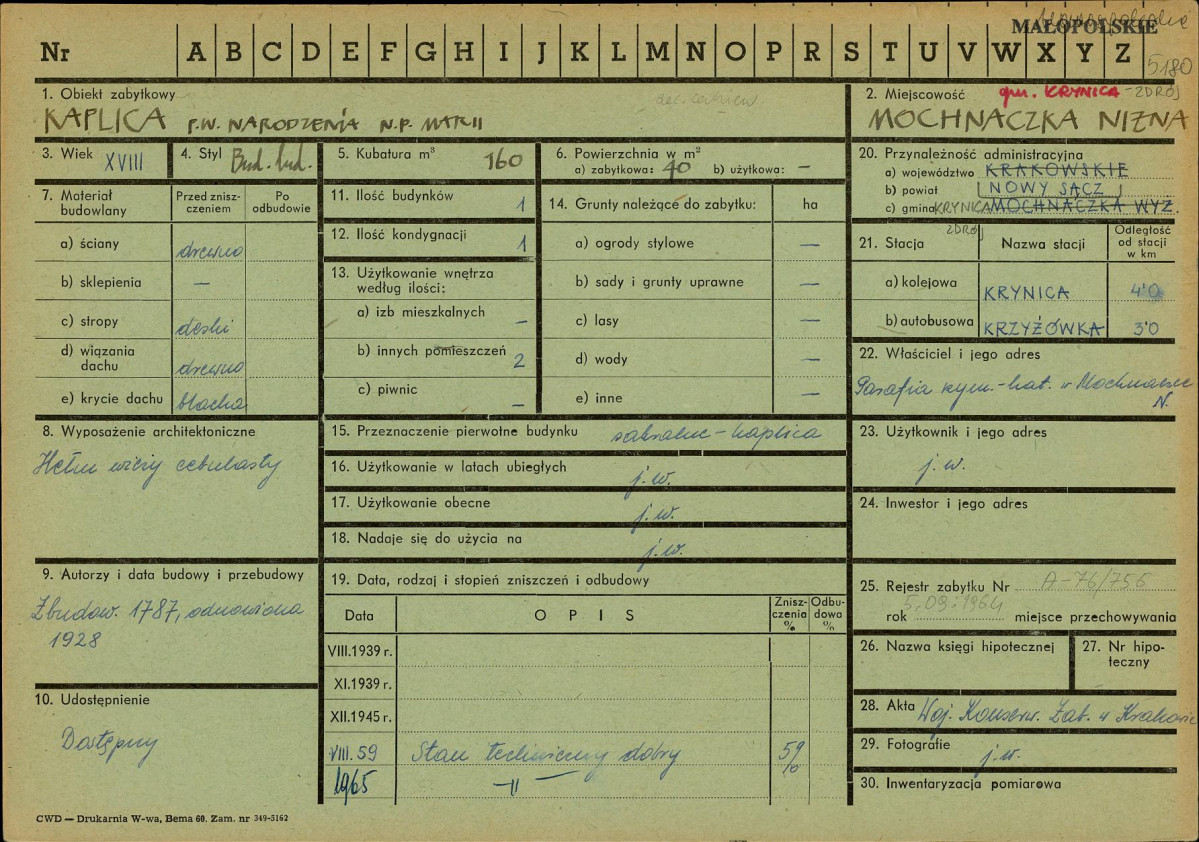 MAŁOPOLSKIE
Nr A B C D E F G H I J K L M N O P R S T U V W X Y Z
5180
1. Obiekt zabytkowy
KAPLICA P.W. NARODZENIA N.P. MARII
2. Miejscowość gm. KRYNICA - ZDRÓJ
MOCHNACZKA NIZNA
3. Wiek XVIII
4. Styl Bud. lud.
5. Kubatura m³ 160
6. Powierzchnia w m²
a) zabytkowa: 40 b) użytkowa: —
20. Przynależność administracyjna
a) województwo KRAKOWSKIE
b) powiat NOWY SĄCZ
c) gmina KRYNICA ZDRÓJ MOCHNACZKA WYŻ.
7. Materiał budowlany
Przed znisz-
czeniem
Po
odbudowie
a) ściany drewno
b) sklepienia —
c) stropy deski
d) wiązania
dachu drewno
e) krycie dachu blacha
11. Ilość budynków 1
12. Ilość kondygnacji 1
13. Użytkowanie wnętrza
według ilości:
a) izb mieszkalnych —
b) innych pomieszczeń 2
c) piwnic —
14. Grunty należące do zabytku: ha
a) ogrody stylowe —
b) sady i grunty uprawne —
c) lasy —
d) wody —
e) inne —
21. Stacja Nazwa stacji
Odległość
od stacji
w km
a) kolejowa KRYNICA 4'0
b) autobusowa KRZYŻÓWKA 3'0
22. Właściciel i jego adres
Parafia rzym.-kat. w Mochnaczce
N.
8. Wyposażenie architektoniczne
Hełm wieży cebulasty
15. Przeznaczenie pierwotne budynku sakralne - kaplica
16. Użytkowanie w latach ubiegłych j.w.
17. Użytkowanie obecne j.w.
18. Nadaje się do użycia na j.w.
23. Użytkownik i jego adres
j.w.
24. Inwestor i jego adres
9. Autorzy i data budowy i przebudowy
Zbudow. 1787, odnowiona
1928
19. Data, rodzaj i stopień zniszczeń i odbudowy
Data OPIS
Znisz-
czenia
%
Odbu-
dowa
%
VIII.1939 r.
XI.1939 r.
XII.1945 r.
VIII.59 Stan techniczny dobry 5%
1965 —"—
25. Rejestr zabytku Nr A-76/756
5.09.1964
rok miejsce przechowywania
26. Nazwa księgi hipotecznej
27. Nr hipo-
teczny
10. Udostępnienie
Dostępny
28. Akta Woj. Konserw. Zab. w Krakowie
29. Fotografie j.w.
30. Inwentaryzacja pomiarowa
CWD — Drukarnia W-wa, Bema 60. Zam. nr 349-5162